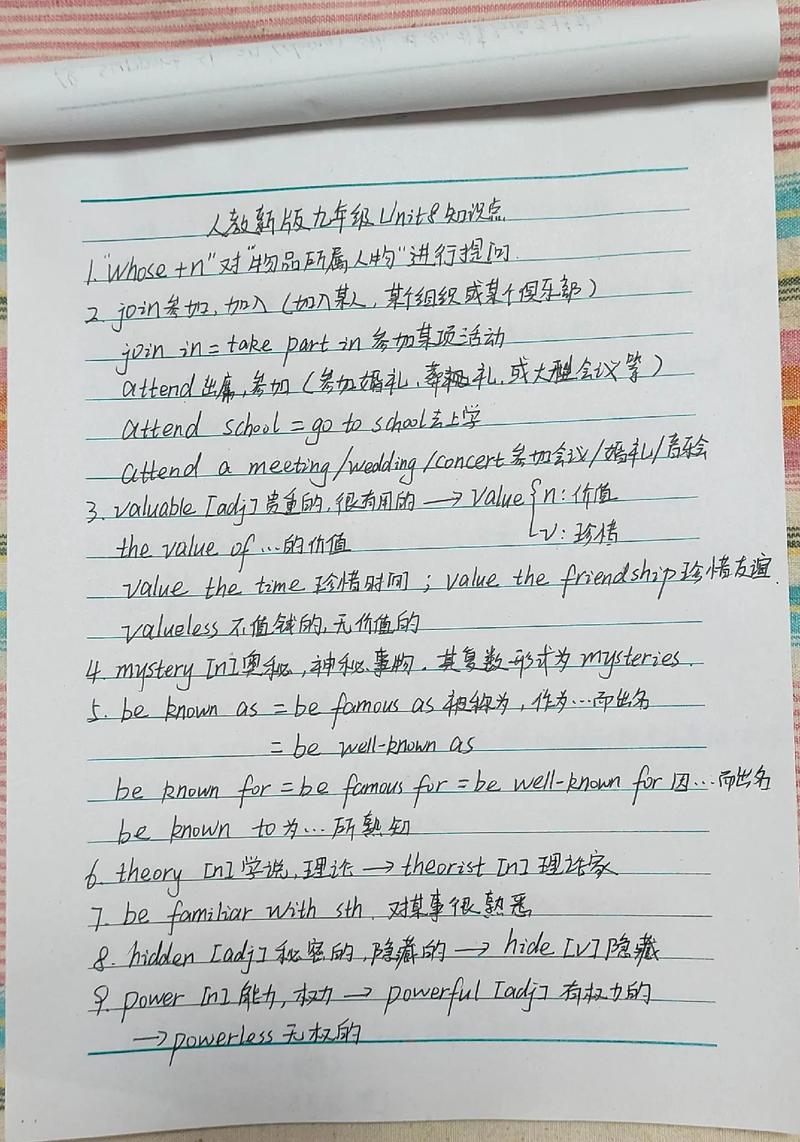 人教新版九年级Unit8知识点
1."Whose +n"对"物品所属人物"进行提问.
2. join参加,加入(加入某人,某个组织或某个俱乐部)
join in=take part in 参加某项活动
attend出席,参加(参加婚礼、葬礼,或大型会议等)
attend school =go to school去上学
attend a meeting/wedding/concert参加会议/婚礼/音乐会
3. valuable [adj]贵重的,很有用的 → value { n:价值
v:珍惜
the value of …的价值
value the time 珍惜时间;value the friendship珍惜友谊.
valueless 不值钱的,无价值的
4. mystery [n]奥秘,神秘事物.其复数形式为mysteries.
5. be known as =be famous as 被称为,作为…而出名
= be well-known as
be known for =be famous for =be well-known for 因…而出名
be known to为…所熟知
6. theory [n]学说,理论 → theorist [n]理论家
7. be familiar with sth. 对某事很熟悉
8. hidden [adj]秘密的,隐藏的 → hide [v]隐藏
9. power [n]能力,权力 → powerful [adj]有权力的
→powerless 无权的